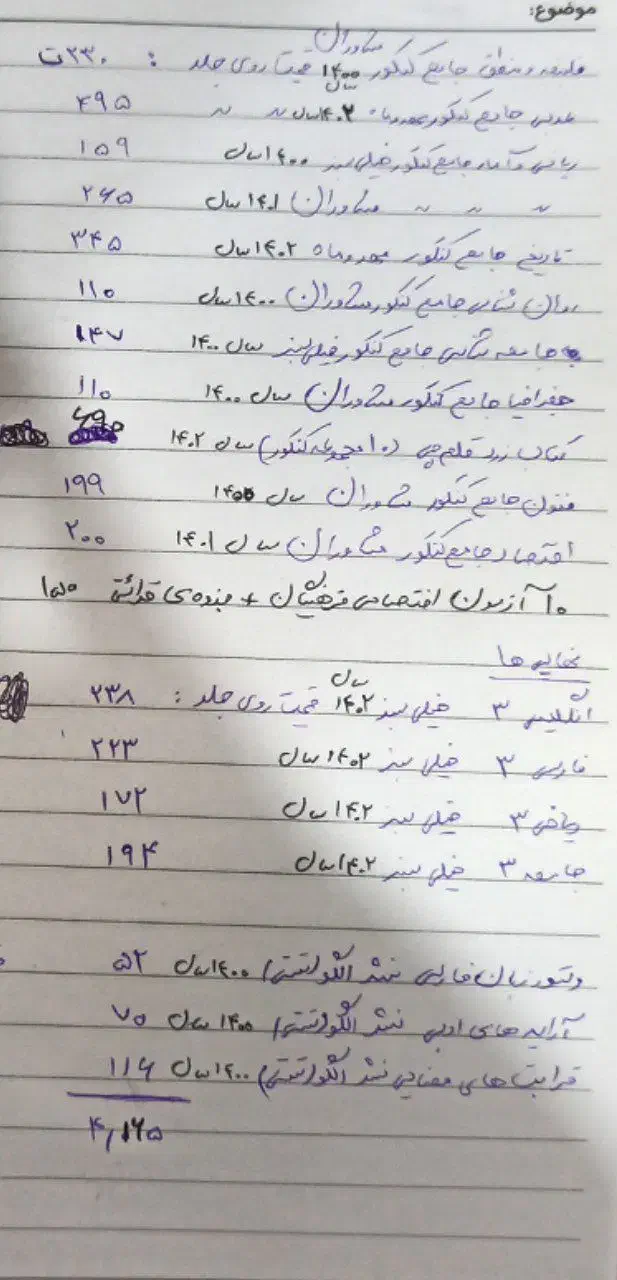 موضوع:
فلسفه و منطق جامع کنکور مشاوران سال ۱۴۰۰ قیمت روی جلد : ۲۳۰ ت
عربی جامع کنکور مهروماه ۱۴۰۲ سال " " ۴۹۵
ریاضی و آمار جامع کنکور خیلی سبز ۱۴۰۰ سال ۱۵۹
" " " مشاوران ۱۴۰۱ سال ۲۶۵
تاریخ جامع کنکور مهروماه ۱۴۰۲ سال ۳۴۵
روان شناسی جامع کنکور مشاوران ۱۴۰۰ سال ۱۱۰
جامعه شناسی جامع کنکور خیلی سبز سال ۱۴۰۰ ۱۴۷
جغرافیا جامع کنکور مشاوران سال ۱۴۰۰ ۱۱۰
کتاب زرد قلم چی (۱۰ مجموعه کنکور) سال ۱۴۰۲
فنون جامع کنکور مشاوران سال ۱۴۰۰ ۱۹۹
اقتصاد جامع کنکور مشاوران سال ۱۴۰۱ ۲۰۰
۱۰ آزمون اختصاصی فرهنگیان + جزوه ی قرائتی ۱۵۰
نهایی ها
انگلیسی ۳ خیلی سبز ۱۴۰۲ سال قیمت روی جلد : ۲۳۸
فارسی ۳ خیلی سبز ۱۴۰۲ سال ۲۲۳
ریاضی ۳ خیلی سبز ۱۴۰۲ سال ۱۷۲
جامعه ۳ خیلی سبز ۱۴۰۲ سال ۱۹۴
دستور زبان فارسی نشر الگو (تستی) ۱۴۰۰ سال ۵۲
آرایه های ادبی نشر الگو (تستی) ۱۴۰۰ سال ۷۵
قرابت های معنایی نشر الگو (تستی) ۱۴۰۰ سال ۱۱۶
۴,۱۶۵